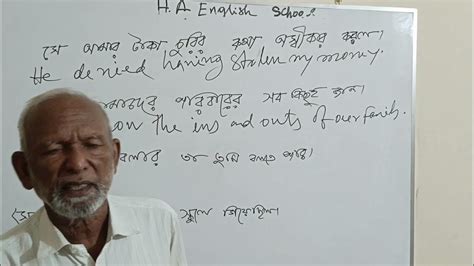 H.A English School.
সে আমার টাকা চুরির কথা অস্বীকার করল।
He denied having stolen my money.
পরিবারের সব কিছুই জান।
on the ins and outs of our family.
তা তুমি বলতে পার।
স্কুলে গিয়েছিল।